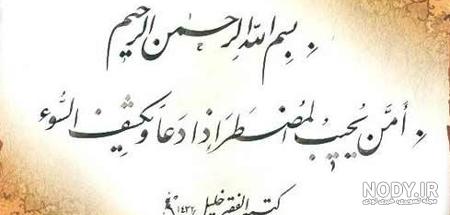 بسم الله الرحمن الرحيم
أمّن يُجيبُ المضطرَ إذا دعا ويكشِفُ السُّوء
كتبه الفقير خليل ١٤٣٢
NODY.IR